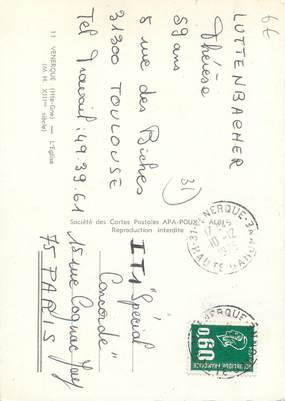 11 VENERQUE (Hte-Gne) — L'Eglise
(M. H. XIIIme siècle)
LUTTENBACHER
Thérèse
59 ans
5 rue des Biches
31300 TOULOUSE
Tel Travail: 49.39.61
31)
6€
Société des Cartes Postales APA-POUX - ALBI
Reproduction interdite
IT1 "Spécial
Concorde"
15 rue Cognac Jay
75 PARIS
VENERQUE
31 HAUTE GARONNE
0.60
REPUBLIQUE FRANÇAISE
POSTES